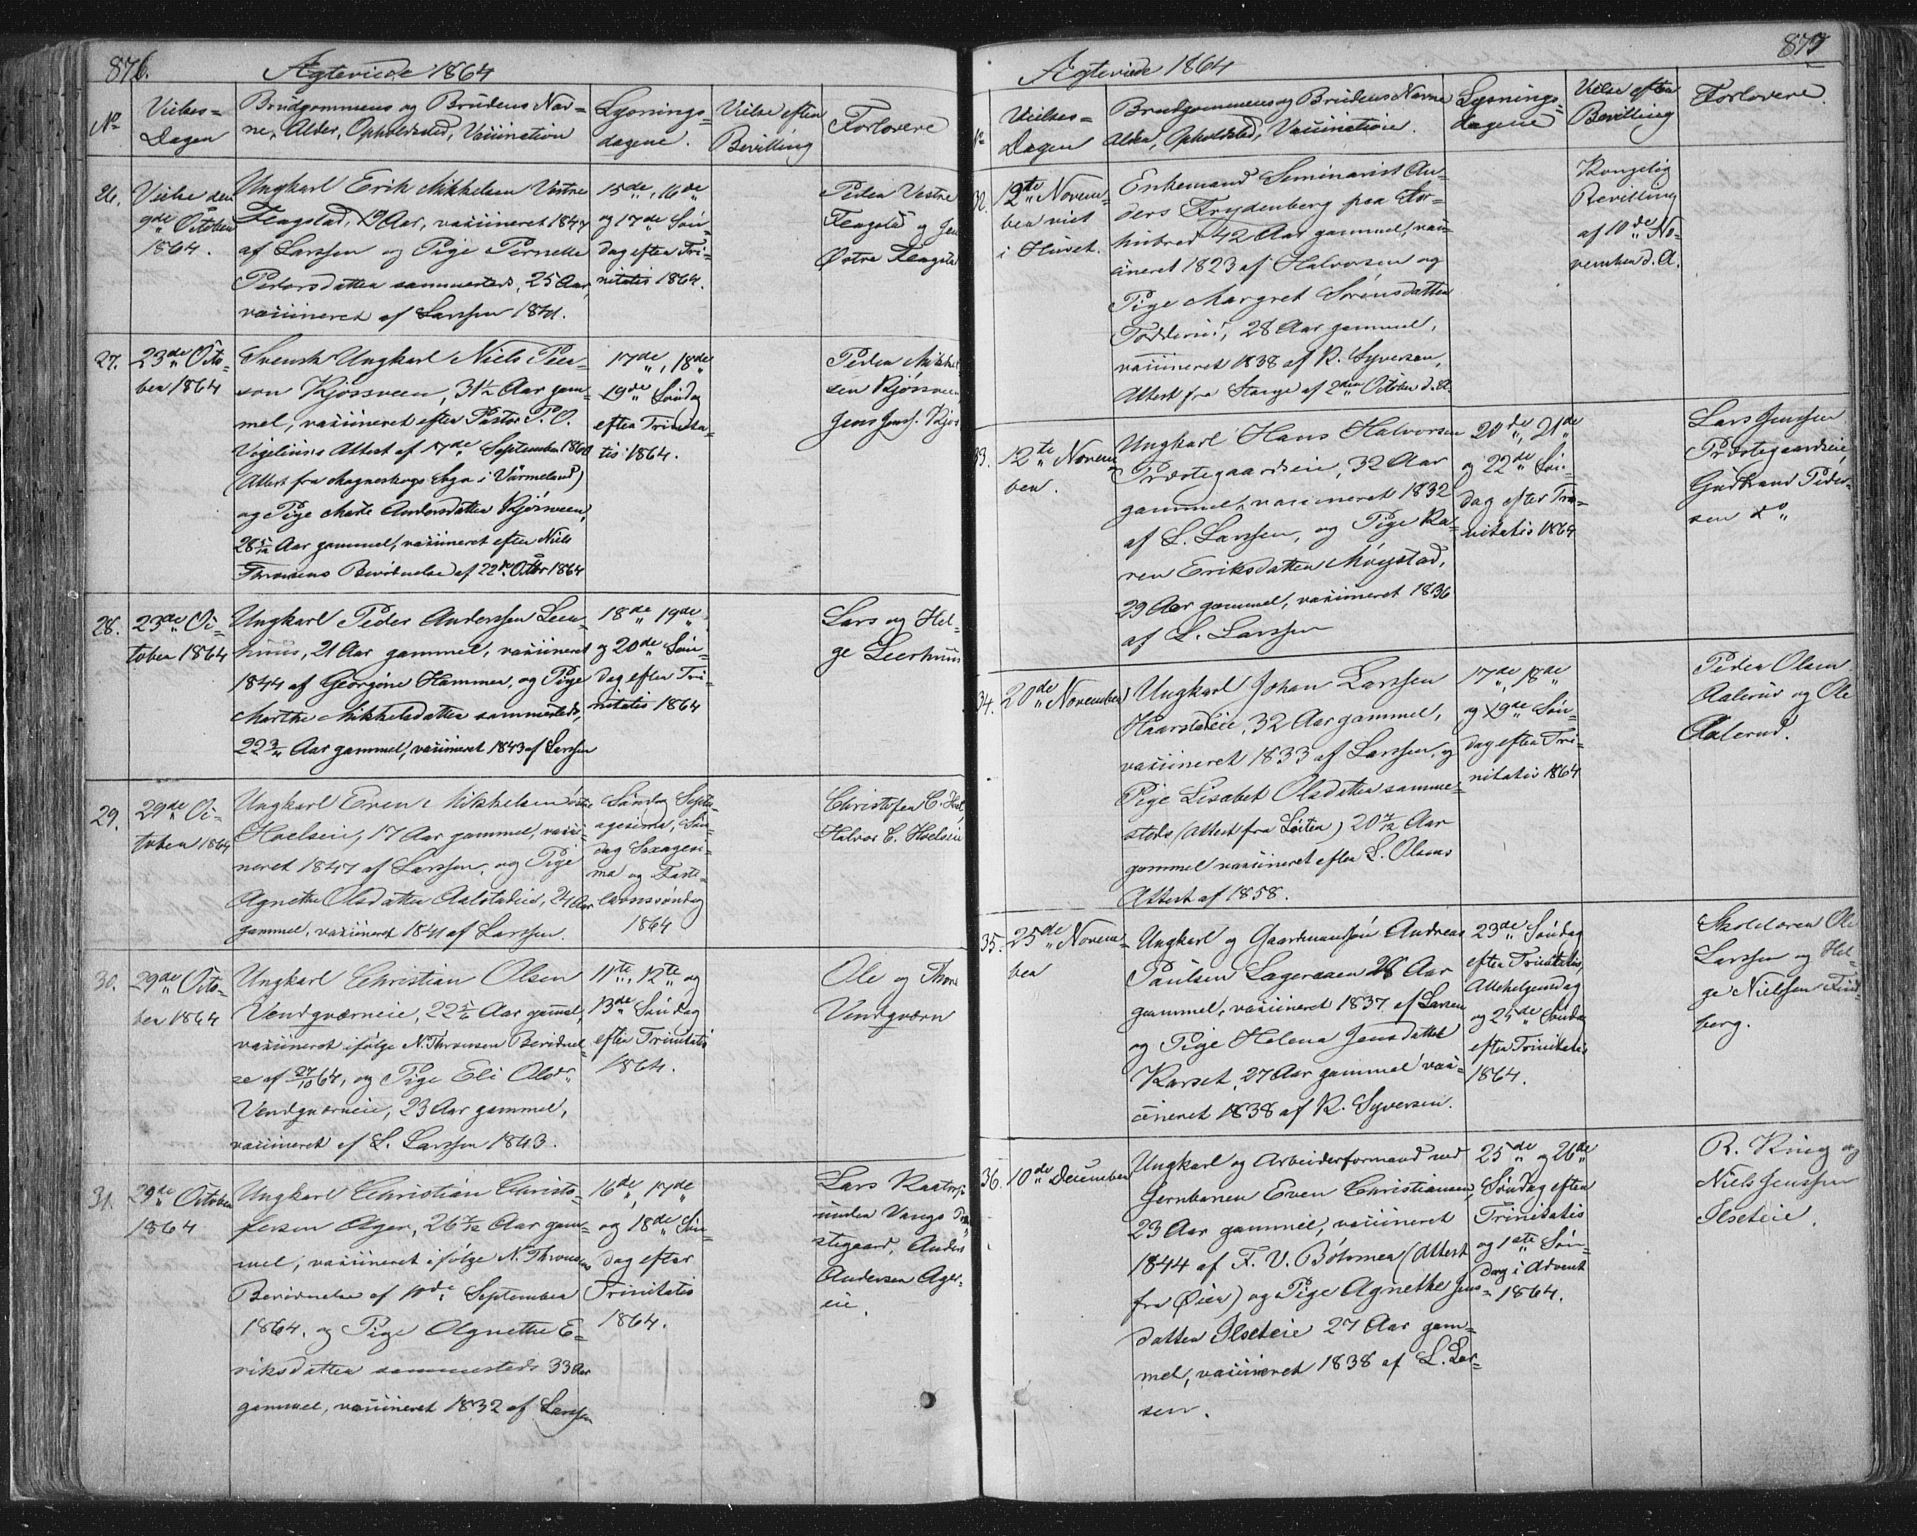 876.
Ægteviede 1864
No
Vielses-
Dagen
Brudgommens og Brudens Nav-
ne, Alder, Opholdssted, Vaccination
Lysnings-
dagene.
Vielse efter
Bevilling
Forlovere
26.
Vielse den
9de October
1864.
Ungkarl Erik Mikkelsen Vestre
Flagstad, 19 Aar, vaccineret 1847
af Larssen og Pige Pernelle
Pedersdatter sammesteds, 25 Aar,
vaccineret af Larssen 1841.
15de, 16de
og 17de Søn-
dag efter Tri-
nitatis 1864.
Peder Vestre
Flagstad og
Østre Flagstad
27.
23de Octo-
ber 1864
Svensk Ungkarl Niels Peer-
son Kjøssveen, 31½ Aar gam-
mel, vaccineret efter Pastor P. O.
Vigelius Attest af 17de September 1864
(Attest fra Magneskogs Sogn i Värmeland)
og Pige Marte Andersdatter Kjøsveen,
28 5/12 Aar gammel, vaccineret efter Niels
Thronsens Bevidnelse af 22de Octbr 1864
17de, 18de
19de Søndag
efter Trinita-
tis 1864.
Peder Mikkel
sen Kjøsveen
Jens Jens. Kjøs
28.
23de Oc-
tober 1864
Ungkarl Peder Anderssen Leer-
huus, 21 Aar gammel, vaccineret
1844 af Georgine Hammer, og Pige
Marthe Mikkelsdatter sammesteds,
Aar gammel, vaccineret 1843 af Larssen
18de 19de
og 20de Søn-
dag efter Tri-
nitatis 1864
Lars og Hel-
ge Leerhuus
29.
29de Oc-
tober 1864
Ungkarl Even Mikkelsen
Hoelseie, 17 Aar gammel, vacci-
neret 1847 af Larssen, og Pige
Agnethe Olsdatter Aalstadeie, 24 Aar
gammel, vaccineret 1841 af Larssen.
Søndag Septu-
agesima, Søn-
dag Sexagesi-
ma og Faste-
lavnssøndag
1864
Christofer C.
Halvor C. Hoelseie
30.
29de Octo-
ber 1864
Ungkarl Christian Olsen
Vendqværneie, 22 5/6 Aar gammel,
vaccineret ifølge N. Thronsens Bevidnel-
se af 27/10 64, og Pige Eli Olsdr
Vendqværneie, 23 Aar gammel,
vaccineret af L. Larssen 1843.
11te, 12te og
13de Søndag
efter Trinitatis
1864.
Ole og Thore
Vendqværn
31.
29de October
1864
Ungkarl Christian Christo-
fersen Ager, 26 Aar gam-
mel, vaccineret ifølge N. Thronsens
Bevidnelse af 10de September
1864, og Pige Agnethe E-
riksdatter sammesteds 33 Aar
gammel, vaccineret 1832 af Larssen
16de, 17de
og 18de Søn-
dag efter
Trinitatis
1864.
Lars Kaatorp
under Vangs Præ-
stegaard, Anders
Andersen Ager-
eie.
877
Ægteviede 1864
No
Vielses-
Dagen
Brudgommens og Brudens Navne
Alder, Opholdssted, Vaccination.
Lysnings-
dagene
Vielse efter
Bevilling
Forlovere.
32.
12te Novem-
ber viet
i Huset.
Enkemand Seminarist An-
ders Frydenberg paa Stor-
hubred 42 Aar gammel, vac-
cineret 1823 af Halvorsen og
Pige Margret Sørensdatter
Fodderud, 28 Aar gammel,
vaccineret 1838 af R. Syversen,
Attest fra Stange af 2den October d. A.
Kongelig
Bevilling
af 10de No-
vember d. A.
33.
12te Novem-
ber.
Ungkarl Hans Halvorsen
Præstegaardseie, 32 Aar
gammel, vaccineret 1832
af L. Larssen, og Pige Ka-
ren Eriksdatter Møystad,
29 Aar gammel, vaccineret 1836
af L. Larssen
20de, 21de
og 22de Søn-
dag efter Tri-
nitatis 1864
Lars Jenssen
Præstegaardseie,
Gudbrand Peder-
sen do
34.
20de November
Ungkarl Johan Larssen
Haarstadeie, 32 Aar gammel,
vaccineret 1833 af Larssen, og
Pige Lisabet Olsdatter samme-
steds, (Attest fra Løiten) 20 Aar
gammel vaccineret efter L. Olsens
Attest af 1858.
17de, 18de
og 19de Søn-
dag efter Tri-
nitatis 1864
Peder Olsen
Aalerud og Ole
Aalerud.
35.
25de Novem-
ber
Ungkarl og Gaardmandssøn Andreas
Paulsen Lageraaen 28 Aar
gammel, vaccineret 1837 af Larssen
og Pige Helena Jensdatter
Karset, 27 Aar gammel vac-
cineret 1838 af R. Syversen.
23de Søndag
efter Trinitatis,
Allehelgensdag
og 25de Søndag
efter Trinitatis
1864.
Skolelærer Ole
Larssen og Hel-
ge Nielsen Find-
berg.
36.
10de December
Ungkarl og Arbeiderformand ved
Jernbanen Even Christiansen
23 Aar gammel, vaccineret
1844 af F. V. Bøhmer (Attest
fra Øier) og Pige Agnethe Jens-
datter Ilseteie 27 Aar gam-
mel, vaccineret 1838 af L. Lar-
sen.
25de og 26de
Søndag efter
Trinitatis
og 1ste Søn-
dag i Advent
1864.
R. Krug og
Niels Jenssen
Ilseteie.